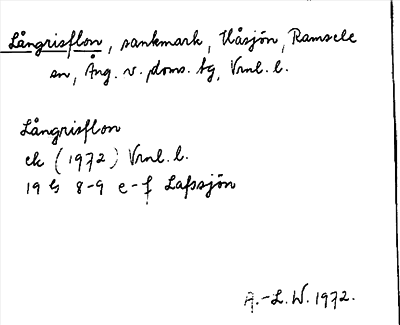 Långrisflon, sankmark, Håsjön, Ramsele
sn, Ång. v. doms. bg, Vrnl. l.
Långrisflon
ek (1972) Vrnl. l.
19 G 8-9 e-f Lafssjön
A.-L. W. 1972.